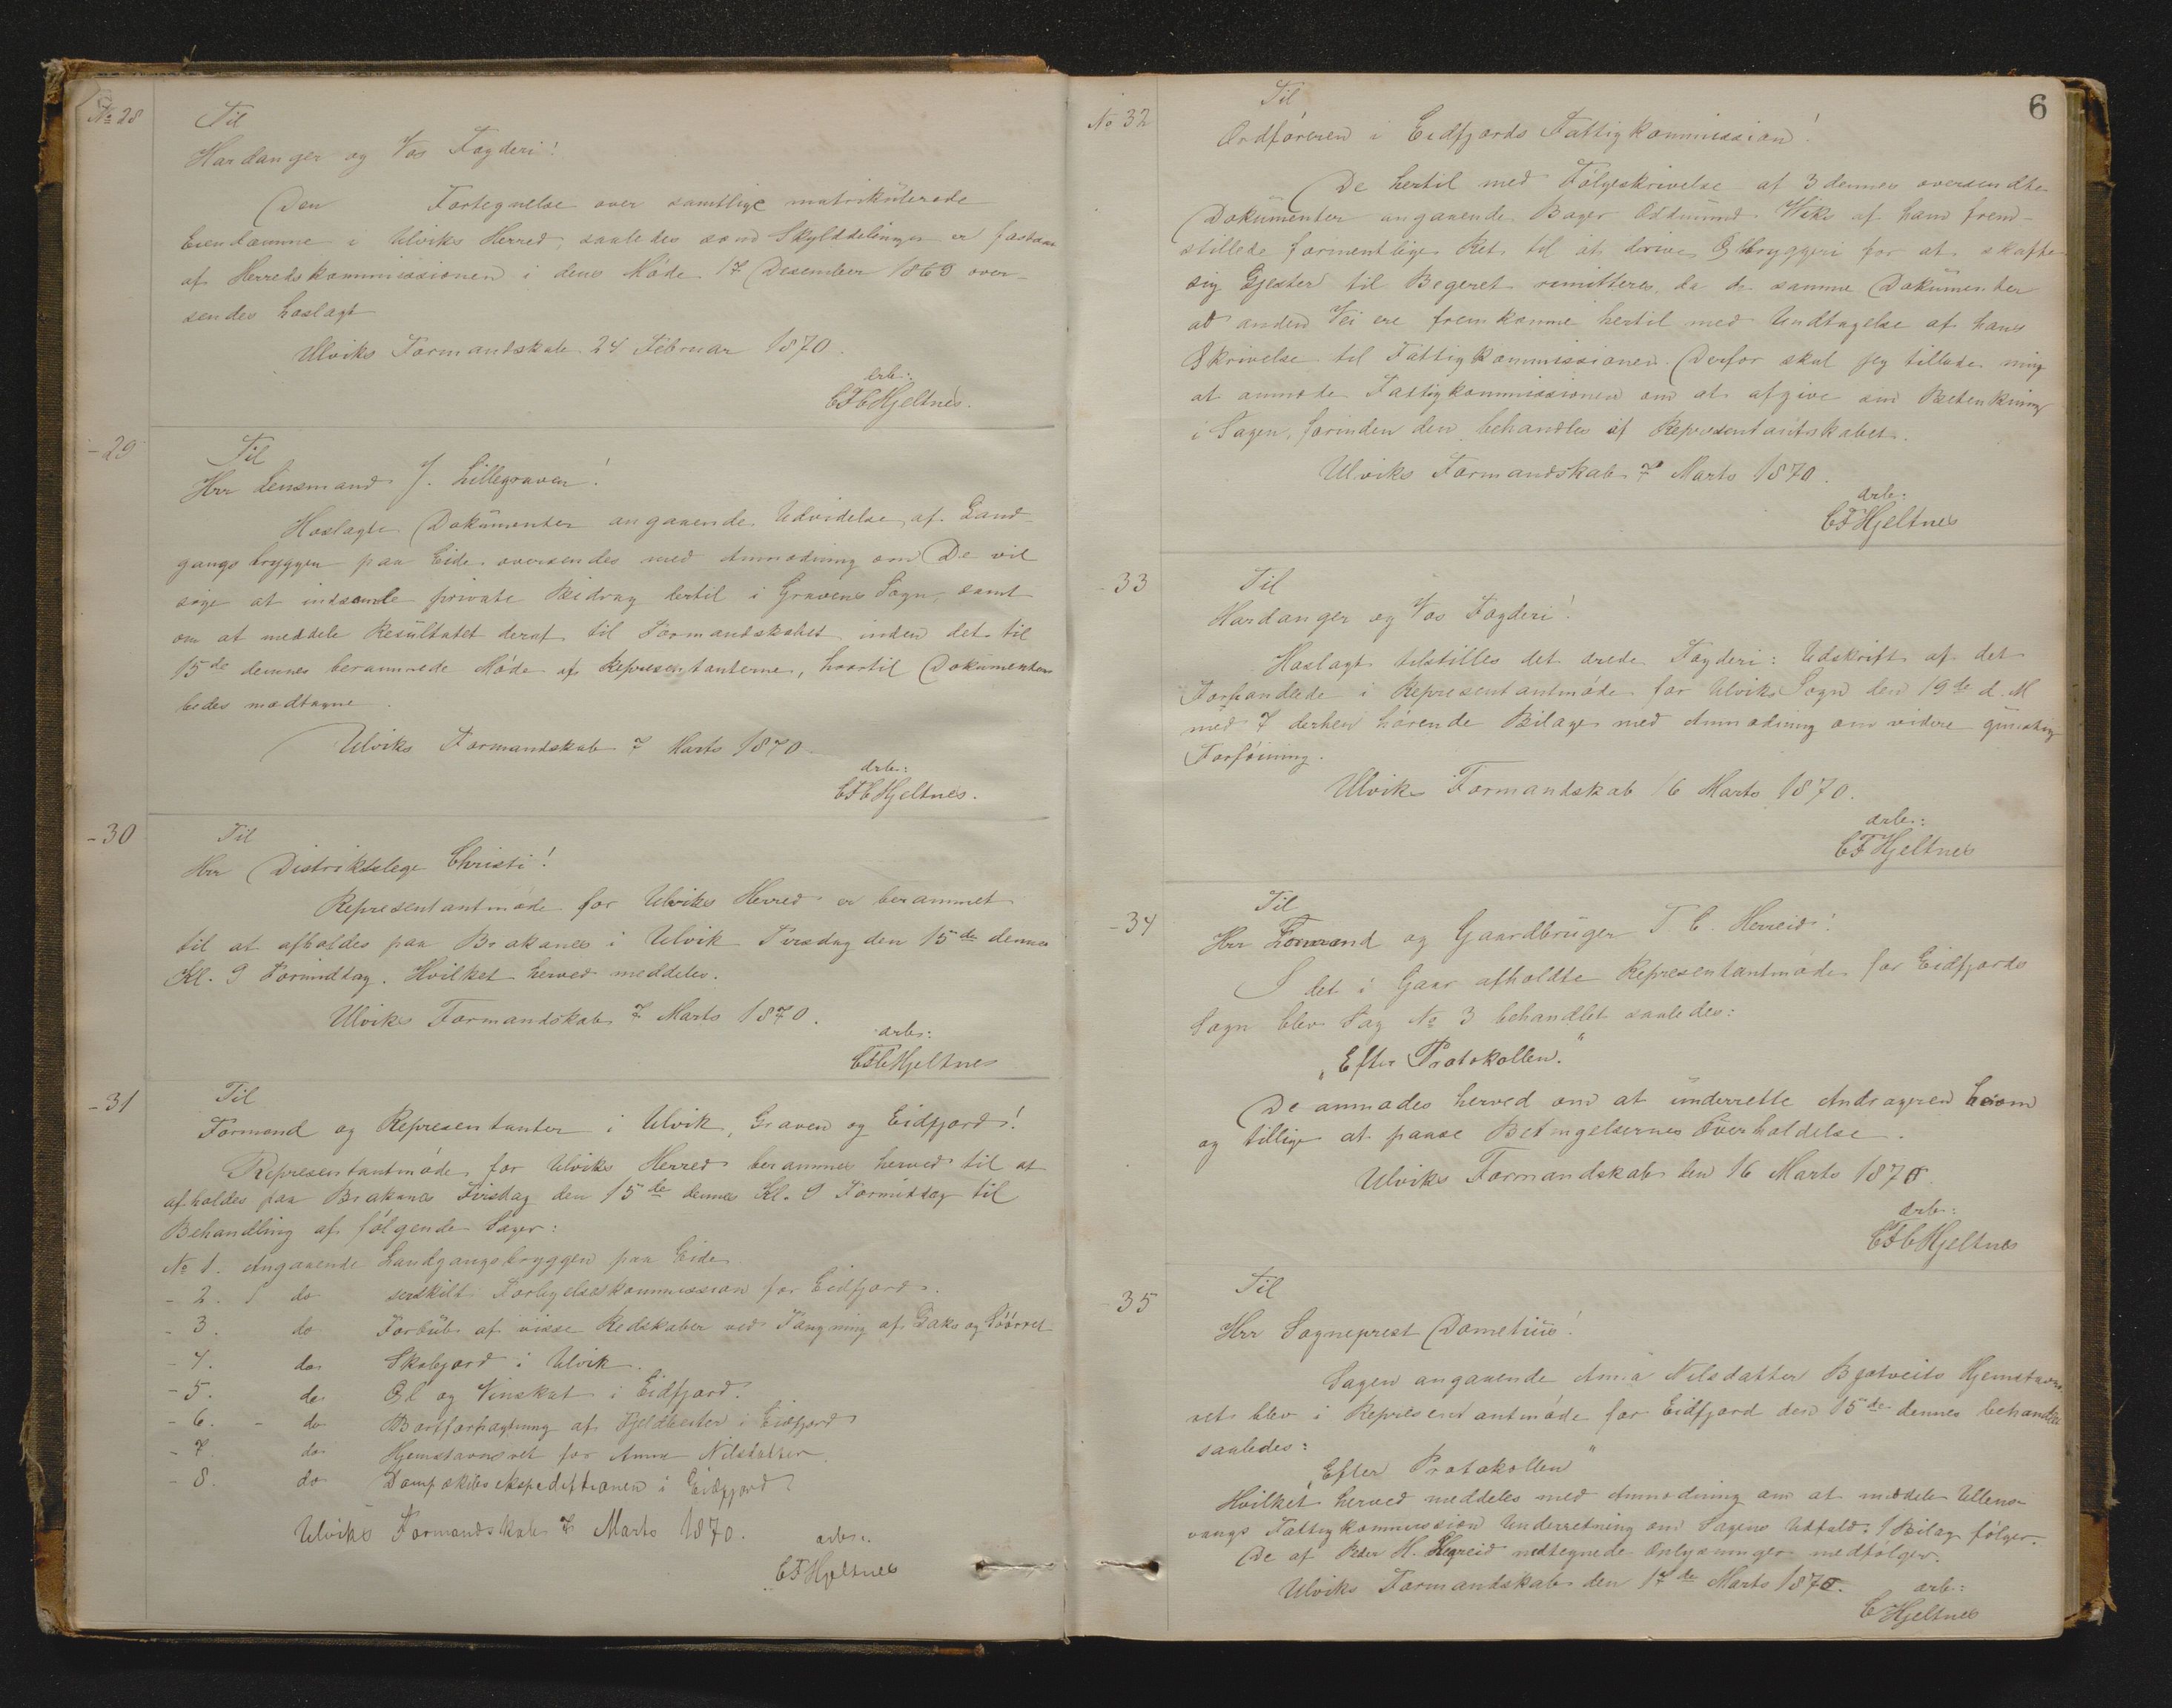 No 28
Til
Hardanger og Vos Fogderi!
Den Fortegnelse over samtlige matrikülerede
Eiendomme i Ulviks Herred, saaledes som Skylddelingen er fastsat
af Herredskommissionen i dens Møde 17 Desember 1869 over-
sendes hoslagt
Ulviks Formandskab 24 Februar 1870.
ærb:
CFCHjeltnes.
- 29
Til
Hrr Lensmand J. Lillegraven!
Hoslagte Dokümenter angaaende Udvidelse af Land-
gangsbryggen paa Eide oversendes med Anmodning om De vil
søge at indsamle private Bidrag dertil i Gravens Sogn, samt
om at meddele Resültatet deraf til Formandskabet inden det til
15de dennes berammede Møde af Representanterne, hvortil Dokümenterne
bedes modtagne.
Ulviks Formandskab 7 Marts 1870.
ærb:
CFCHjeltnes.
- 30
Til
Hrr Distriktslege Christi!
Representantmøde for Ulviks Herred er berammet
til at afholdes paa Brakanes i Ulvik Tirsdag den 15de dennes
Kl. 9 Formidtag. Hvilket herved meddeles.
Ulviks Formandskab 7 Marts 1870.
ærb:
CFCHjeltnes
- 31
Til
Formænd og Representanter i Ulvik, Graven og Eidfjord!
Representantmøde for Ulviks Herred berammes herved til at
afholdes paa Brakanes Tirsdag den 15de dennes Kl. 9 Formidtag til
Behandling af følgende Sager:
No 1. Angaaende Landgangsbryggen paa Eide
- 2. do serskilt Forligelseskommission for Eidfjord.
- 3. do Forbüb af visse Redskaber ved Fangning af Laks og Søørret
- 4. do Skolejord i Ulvik.
- 5. do Øl og Vinskat i Eidfjord.
- 6. - do Bortforpagtning af Fjeldbeiter i Eidfjord
- 7 do Hjemstavnsret for Anna Nilsdatter
- 8. do Dampskibsekspeditionen i Eidfjord
Ulviks Formandskab 7 Marts 1870.
ærb:
CFHjeltnes
6
No 32
Til
Ordføreren i Eidfjords Fattigkommission!
De hertil med Følgeskrivelse af 3 dennes oversendte
Dokümenter angaaende Bager Oddmünd Viks af ham frem-
stillede formentlige Ret til at drive Ølbryggeri for at skaffe
sig Gjester til Begeret rimitteres, da de samme Dokümenter
ad anden Vei ere fremkomne hertil med Undtagelse af hans
Skrivelse til Fattigkommissionen. Derfor skal jeg tillade mig
at anmode Fattigkommissionen om at afgive sin Betenkning
i Sagen, forinden den behandles af Representantskabet.
Ulviks Formandskab 7 Marts 1870.
ærb:
CFHjeltnes
- 33
Til
Hardanger og Vos Fogderi!
Hoslagt tilstilles det ærede Fogderi: Udskrift af det
Forhandlede i Representantmøde for Ulviks Sogn den 19de d. M
med 7 derhen hørende Bilage med Anmodning om videre günstig
Forføining.
Ulviks Formandskab 16 Marts 1870.
ærb:
CFHjeltnes
- 34
Til
Hrr Formand og Gaardbrüger T. C. Hereid!
I det i Gaar afholdte Representantmøde for Eidfjords
Sogn blev Sag No 3 behandlet saaledes:
„Efter Protokollen."
De anmodes herved om at ünderrette Andrageren herom
og tillige at paase Betingelsernes Överholdelse.
Ulviks Formandskab den 16 Marts 1870
ærb:
CFCHjeltnes
- 35
Til
Hrr Sogneprest Dometiüs!
Sagen angaaende Anna Nilsdatter Bjotveits Hjemstavns
ret blev i Representantmøde for Eidfjord den 15de dennes behandlet
saaledes:
„Efter Protokollen"
Hvilket herved meddeles med Anmodning om at meddele Ullens-
vangs Fattigkommission Underretning om Sagens Udfald. 1 Bilag følger.
De af Peder H. Hereid nedtegnede Oplysninger medfølger.
Ulviks Formandskab den 17de Marts 1870.
ærb:
CHjeltnes